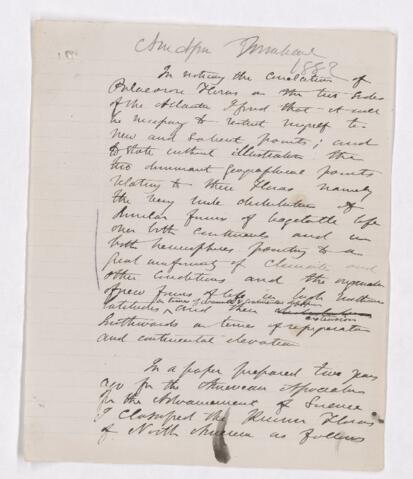 1888
In noticing the correlation of
Palaeozoic Floras on the two sides
of the Atlantic I find that it will
be necessary to restrict myself to
new and salient points; and
to state without illustration the
two dominant geographical points
relating to these Floras namely
the very wide distribution of
similar forms of vegetable life
over both continents and in
both hemispheres pointing to a
great uniformity of climate and
other conditions and the
of new forms of life in high northern
latitudes and their extension
Southwards in times of refrigeration
and continental elevation
In a paper prepared two years
ago for the American Association
for the Advancement of Science
I classified the Floras
of North America as follows